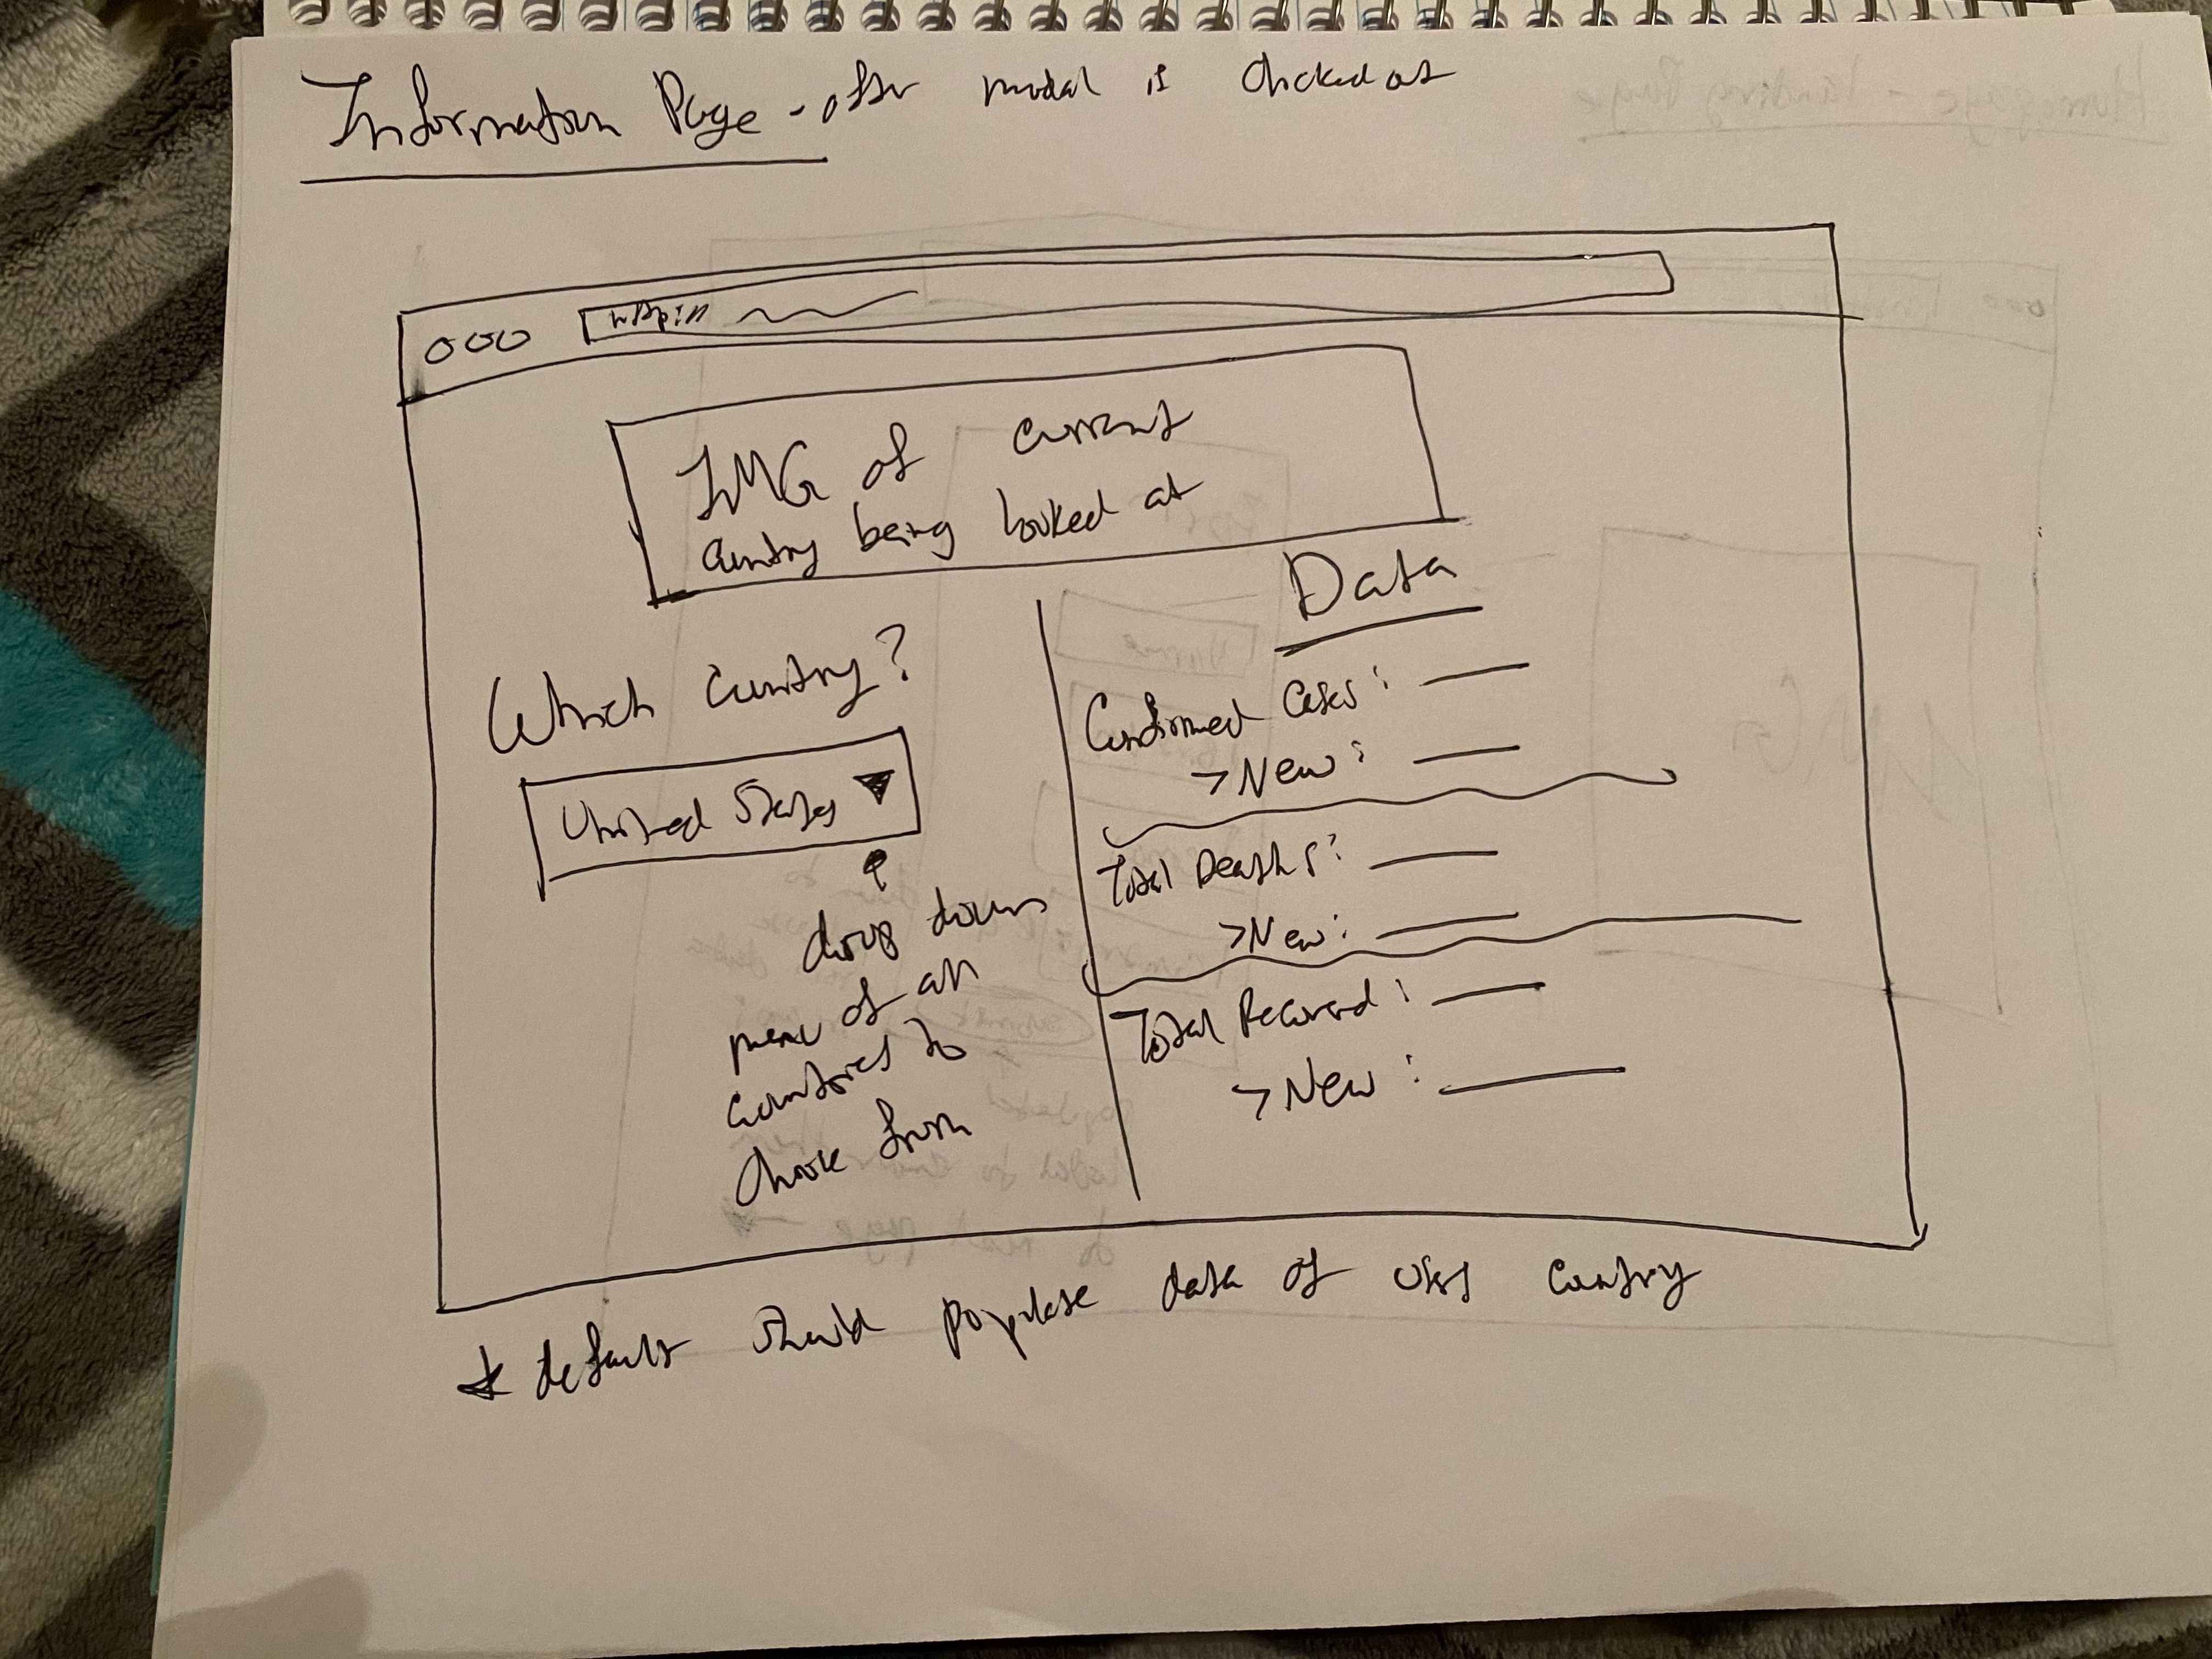 Information Page - after modal is clicked at
http://
IMG of current
country being looked at
Which country?
United States
drop down
menu of all
countries to
choose from
Data
Confirmed Cases:
> New:
Total Deaths:
> New:
Total Recovered:
> New:
* default should populate data of users country
Homepage - Landing Page
IMG
Name